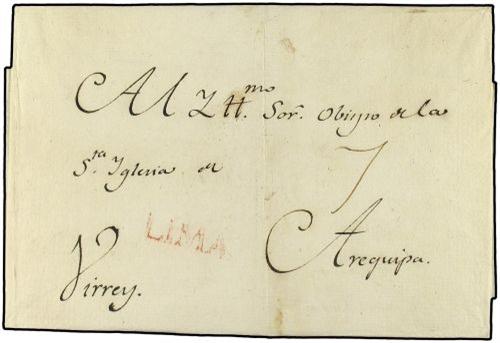 Al Ill.mo Sor. Obispo de la
S.ta Iglesia de
7
LIMA
Arequipa.
Virrey.